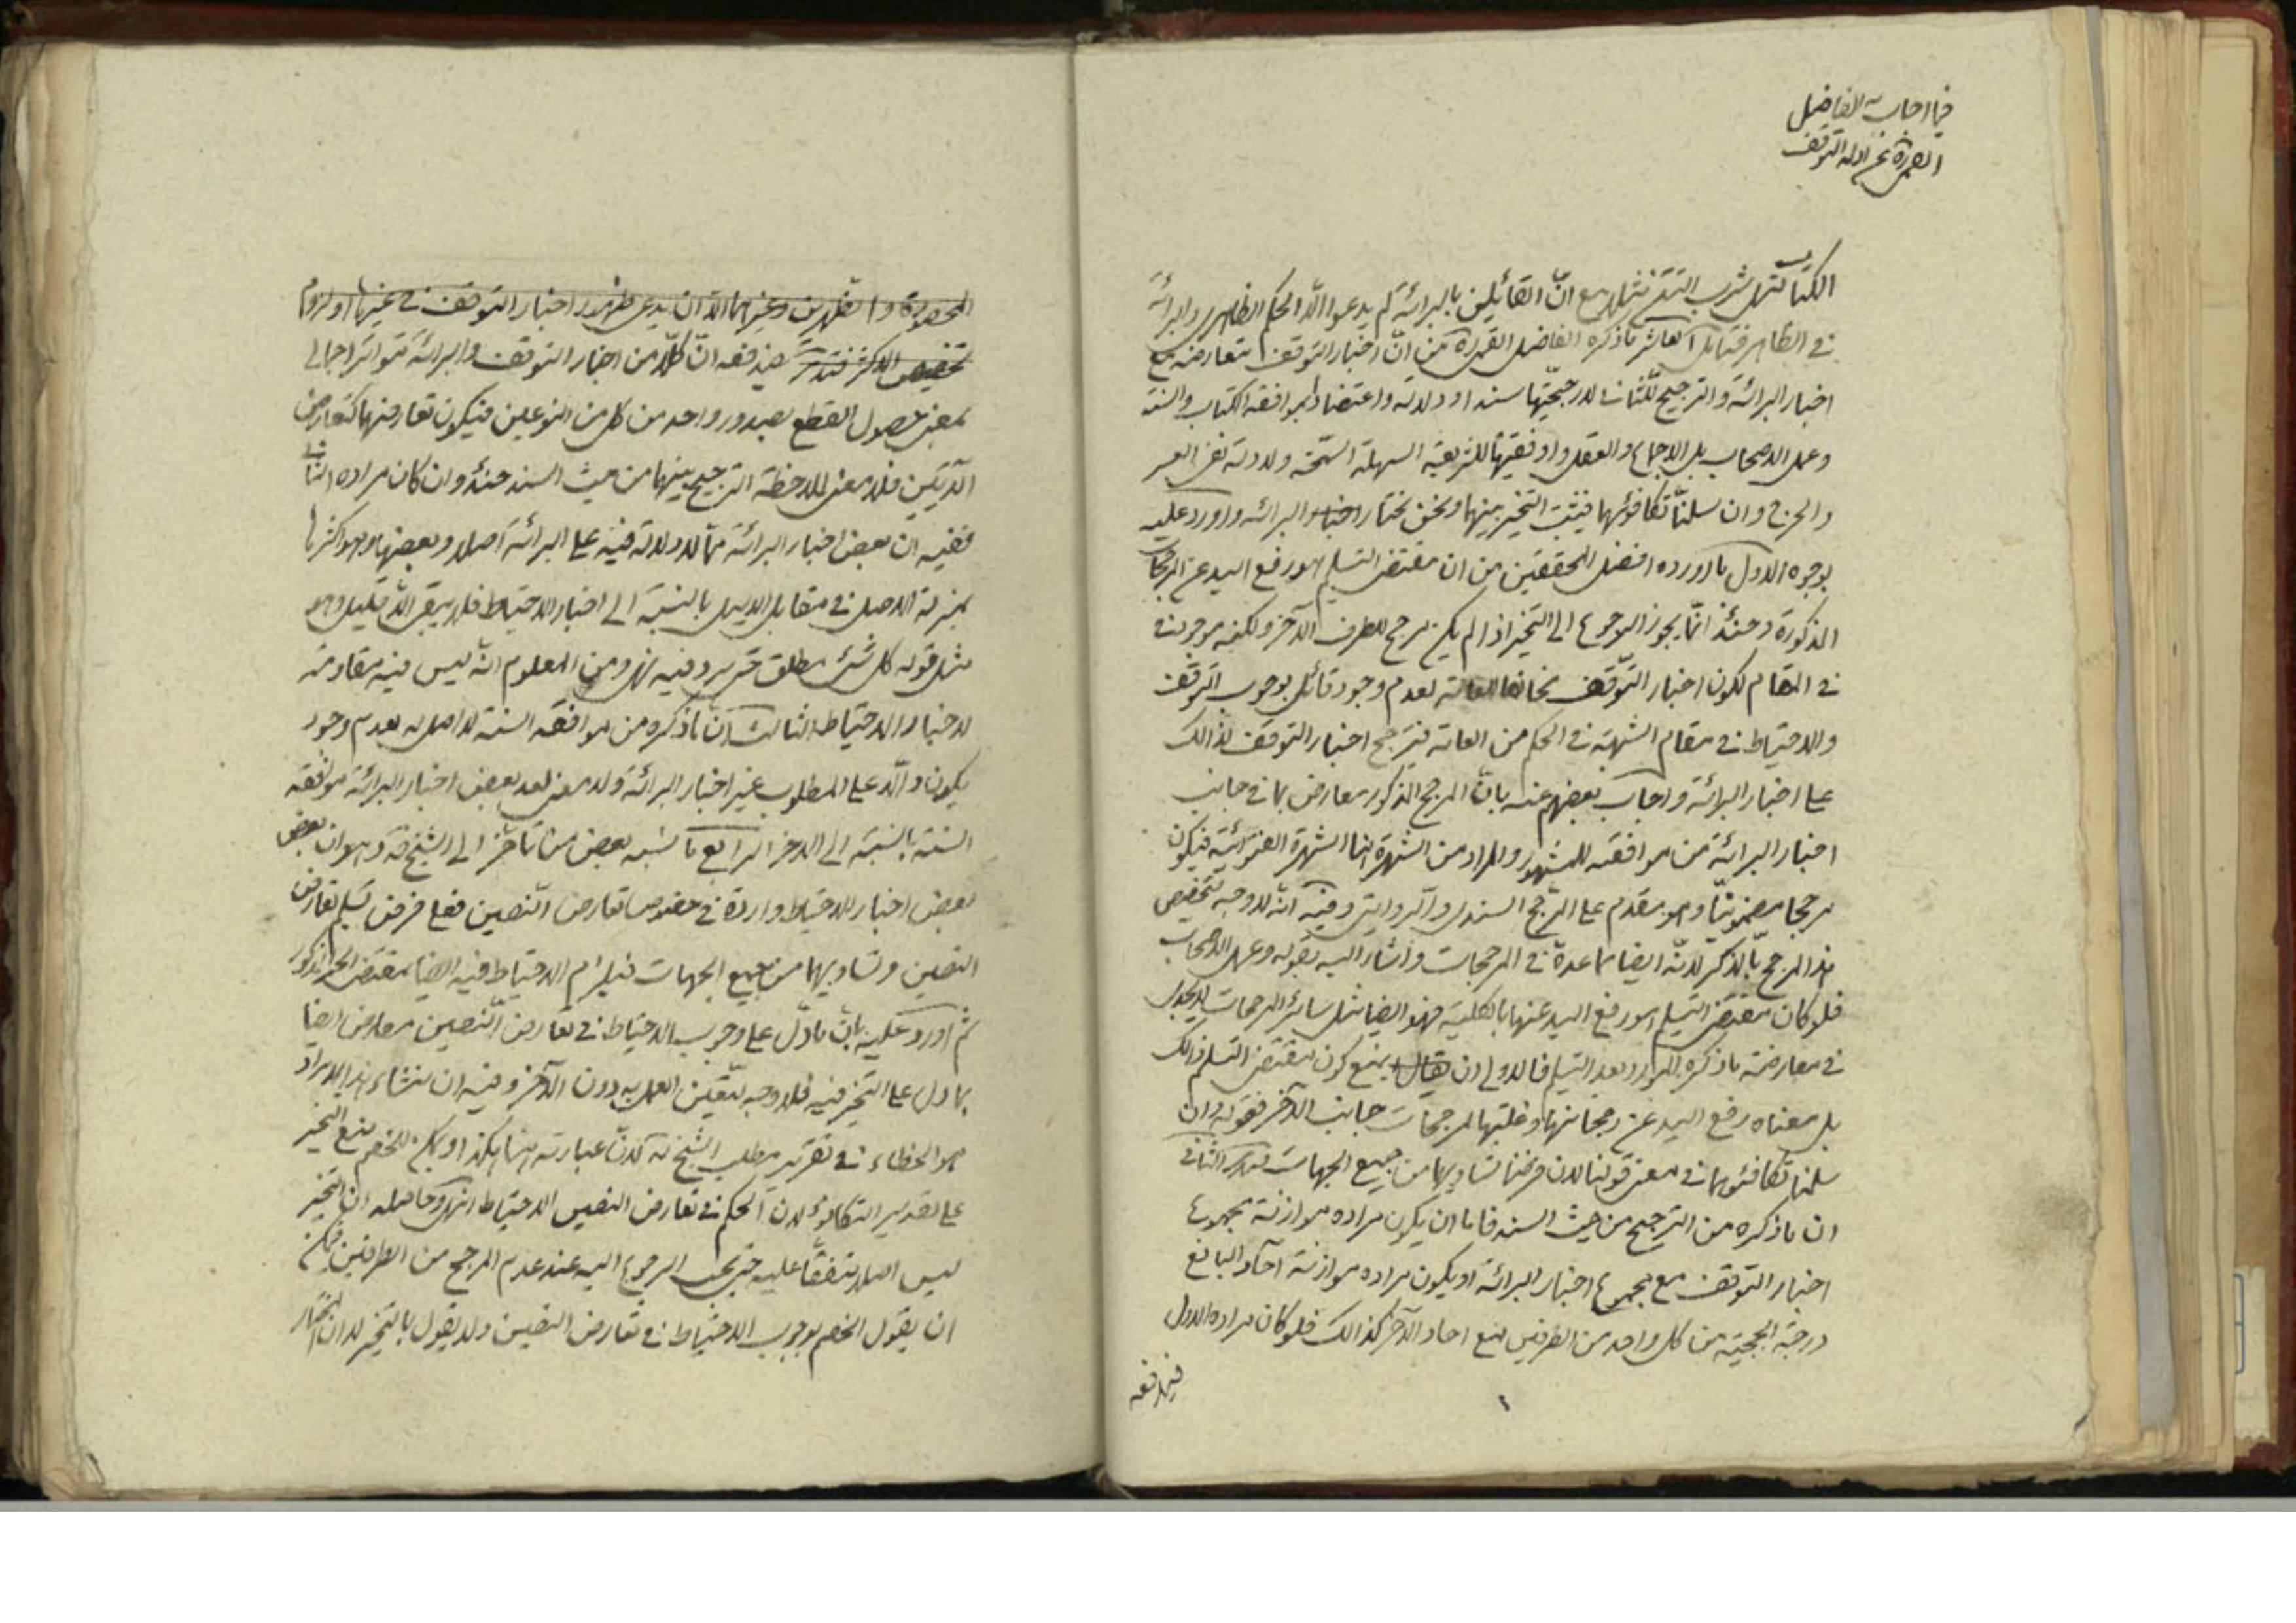 فيما اجاب به الفاضل
النراقي عن ادلة التوقف
الكتاب كتمل شرب التتن تتأمل مع انّ القائلين بالبرائة لم يدعوا الّا الحكم الظاهري والبرائة
في الظاهر فتأمل العاشر ما ذكره الفاضل النراقي ره من انّ اخبار التوقف متعارضة مع
اخبار البرائة والترجيح للثاني لارجحيّتها سندا ودلالة واعتضادا بموافقة الكتاب والسنة
وعمل الاصحاب بل الاجماع والعقل واوفقيتها للشريعة السهلة السمحة ولادلة نفي العسر
والحرج وان سلّمنا تكافؤهما فيثبت التخيير بينهما ونحن نختار اخبار البرائة واورد عليه
بوجوه الاول ما اورده افضل المحققين من ان مقتضى التسليم هو رفع اليد عن المرجحات
المذكورة وحينئذ انّما يجوز الرجوع الى التخيير اذا لم يكن مرجح للطرف الآخر ولكنه موجود
في المقام لكون اخبار التوقف مخالفا للعامة لعدم وجود قائل بوجوب التوقف
والاحتياط في مقام الشبهة في الحكم من العامة فيترجح اخبار التوقف لذالك
على اخبار البرائة واجاب بعضهم عنه بانّ المرجح المذكور معارض بما في جانب
اخبار البرائة من موافقته للمشهور والمراد من الشهرة هنا الشهرة الفتوائية فيكون
مرجحا مضمونيّا وهو مقدم على المرجح السندي والروايتي وفيه انّه لا وجه لتخصيص
هذا المرجح بالذكر لانّه ايضا مما عدّه في المرجحات واشار اليه بقوله وعمل الاصحاب
فلو كان مقتضى التسليم هو رفع اليد عنها بالكلية فهو ايضا مثل سائر المرجحات لا يجدى
في معارضة ما ذكره المورد بعد التسليم فالاولى ان يقال بمنع كون مقتضى التسليم ذالك
بل معناه رفع اليد عن رجحانها وغلبتها لمرجحات جانب الآخر فقوله وان
سلمنا تكافئوهما في معنى قولنا لان فرضنا تساويهما من جميع الجهات الثاني
ان ما ذكره من الترجيح من حيث السند فاما ان يكون مراده موازنة مجموع
اخبار التوقف مع مجموع اخبار البرائة او يكون مراده موازنة آحاد البالغ
درجة الحجية من كل واحد من الطرفين مع احاد الآخر كذالك فلو كان مراده الاول
فيدفعه
المحصورة و وغيرهما الّا ان يدعى ظهور اخبار التوقف في غيرها او لزوم
تخصيص الاكثر فتدبر فيدفعه انّ كلّا من اخبار التوقف والبرائة متواتر اجمالي
بمعنى حصول القطع بصدور واحد من كل من النوعين فيكون تعارضهما كتعارض
الآيتين فلا معنى لملاحظة الترجيح بينهما من حيث السند حينئذ وان كان مراده الثاني
ففيه ان بعض اخبار البرائة مما لا دلالة فيه على البرائة اصلا وبعضها وهو اكثرها
بمنزلة الاصل في مقابل الدليل بالنسبة الى اخبار الاحتياط فلا يبقى الّا قليل وهو
مثل قوله كل شئ مطلق حتى يرد فيه نهى ومن المعلوم انّه ليس فيه مقاومة
لاخبار الاحتياط الثالث انّ ما ذكره من موافقة السنة لا اصل له لعدم وجود
يكون دالّا على المطلوب غير اخبار البرائة ولا معنى لعد بعض اخبار البرائة موافقة
السنة بالنسبة الى الاخر الرابع ما نسبه بعض من تاخر الى الشيخ قده وهو ان بعض
بعض اخبار الاحتياط واردة في خصوص تعارض النّصين فعلى فرض تسليم تعارض
النصين وتساويهما من جميع الجهات فيلزم الاحتياط فيه ايضا بمقتضى الخبر المذكور
ثم اورد عليه بانّ ما دلّ على وجوب الاحتياط في تعارض النّصين معارض ايضا
بما دل على التخيير فيه فلا وجه لتعيّن العمل به دون الآخر وفيه ان منشاء هذا الايراد
هو الخطاء في تقرير مطلب الشيخ ره لانّ عبارته هنا هكذا ويمكن للخصم منع التخيير
على تقدير التكافؤ لان الحكم في تعارض النصين الاحتياط انتهى وحاصله ان التخيير
ليس اصلا متفقا عليه حتى يجب الرجوع اليه عند عدم المرجح من الطرفين فيمكن
ان يقول الخصم بوجوب الاحتياط في تعارض النصين ولا يقول بالتخيير لا ان المختار